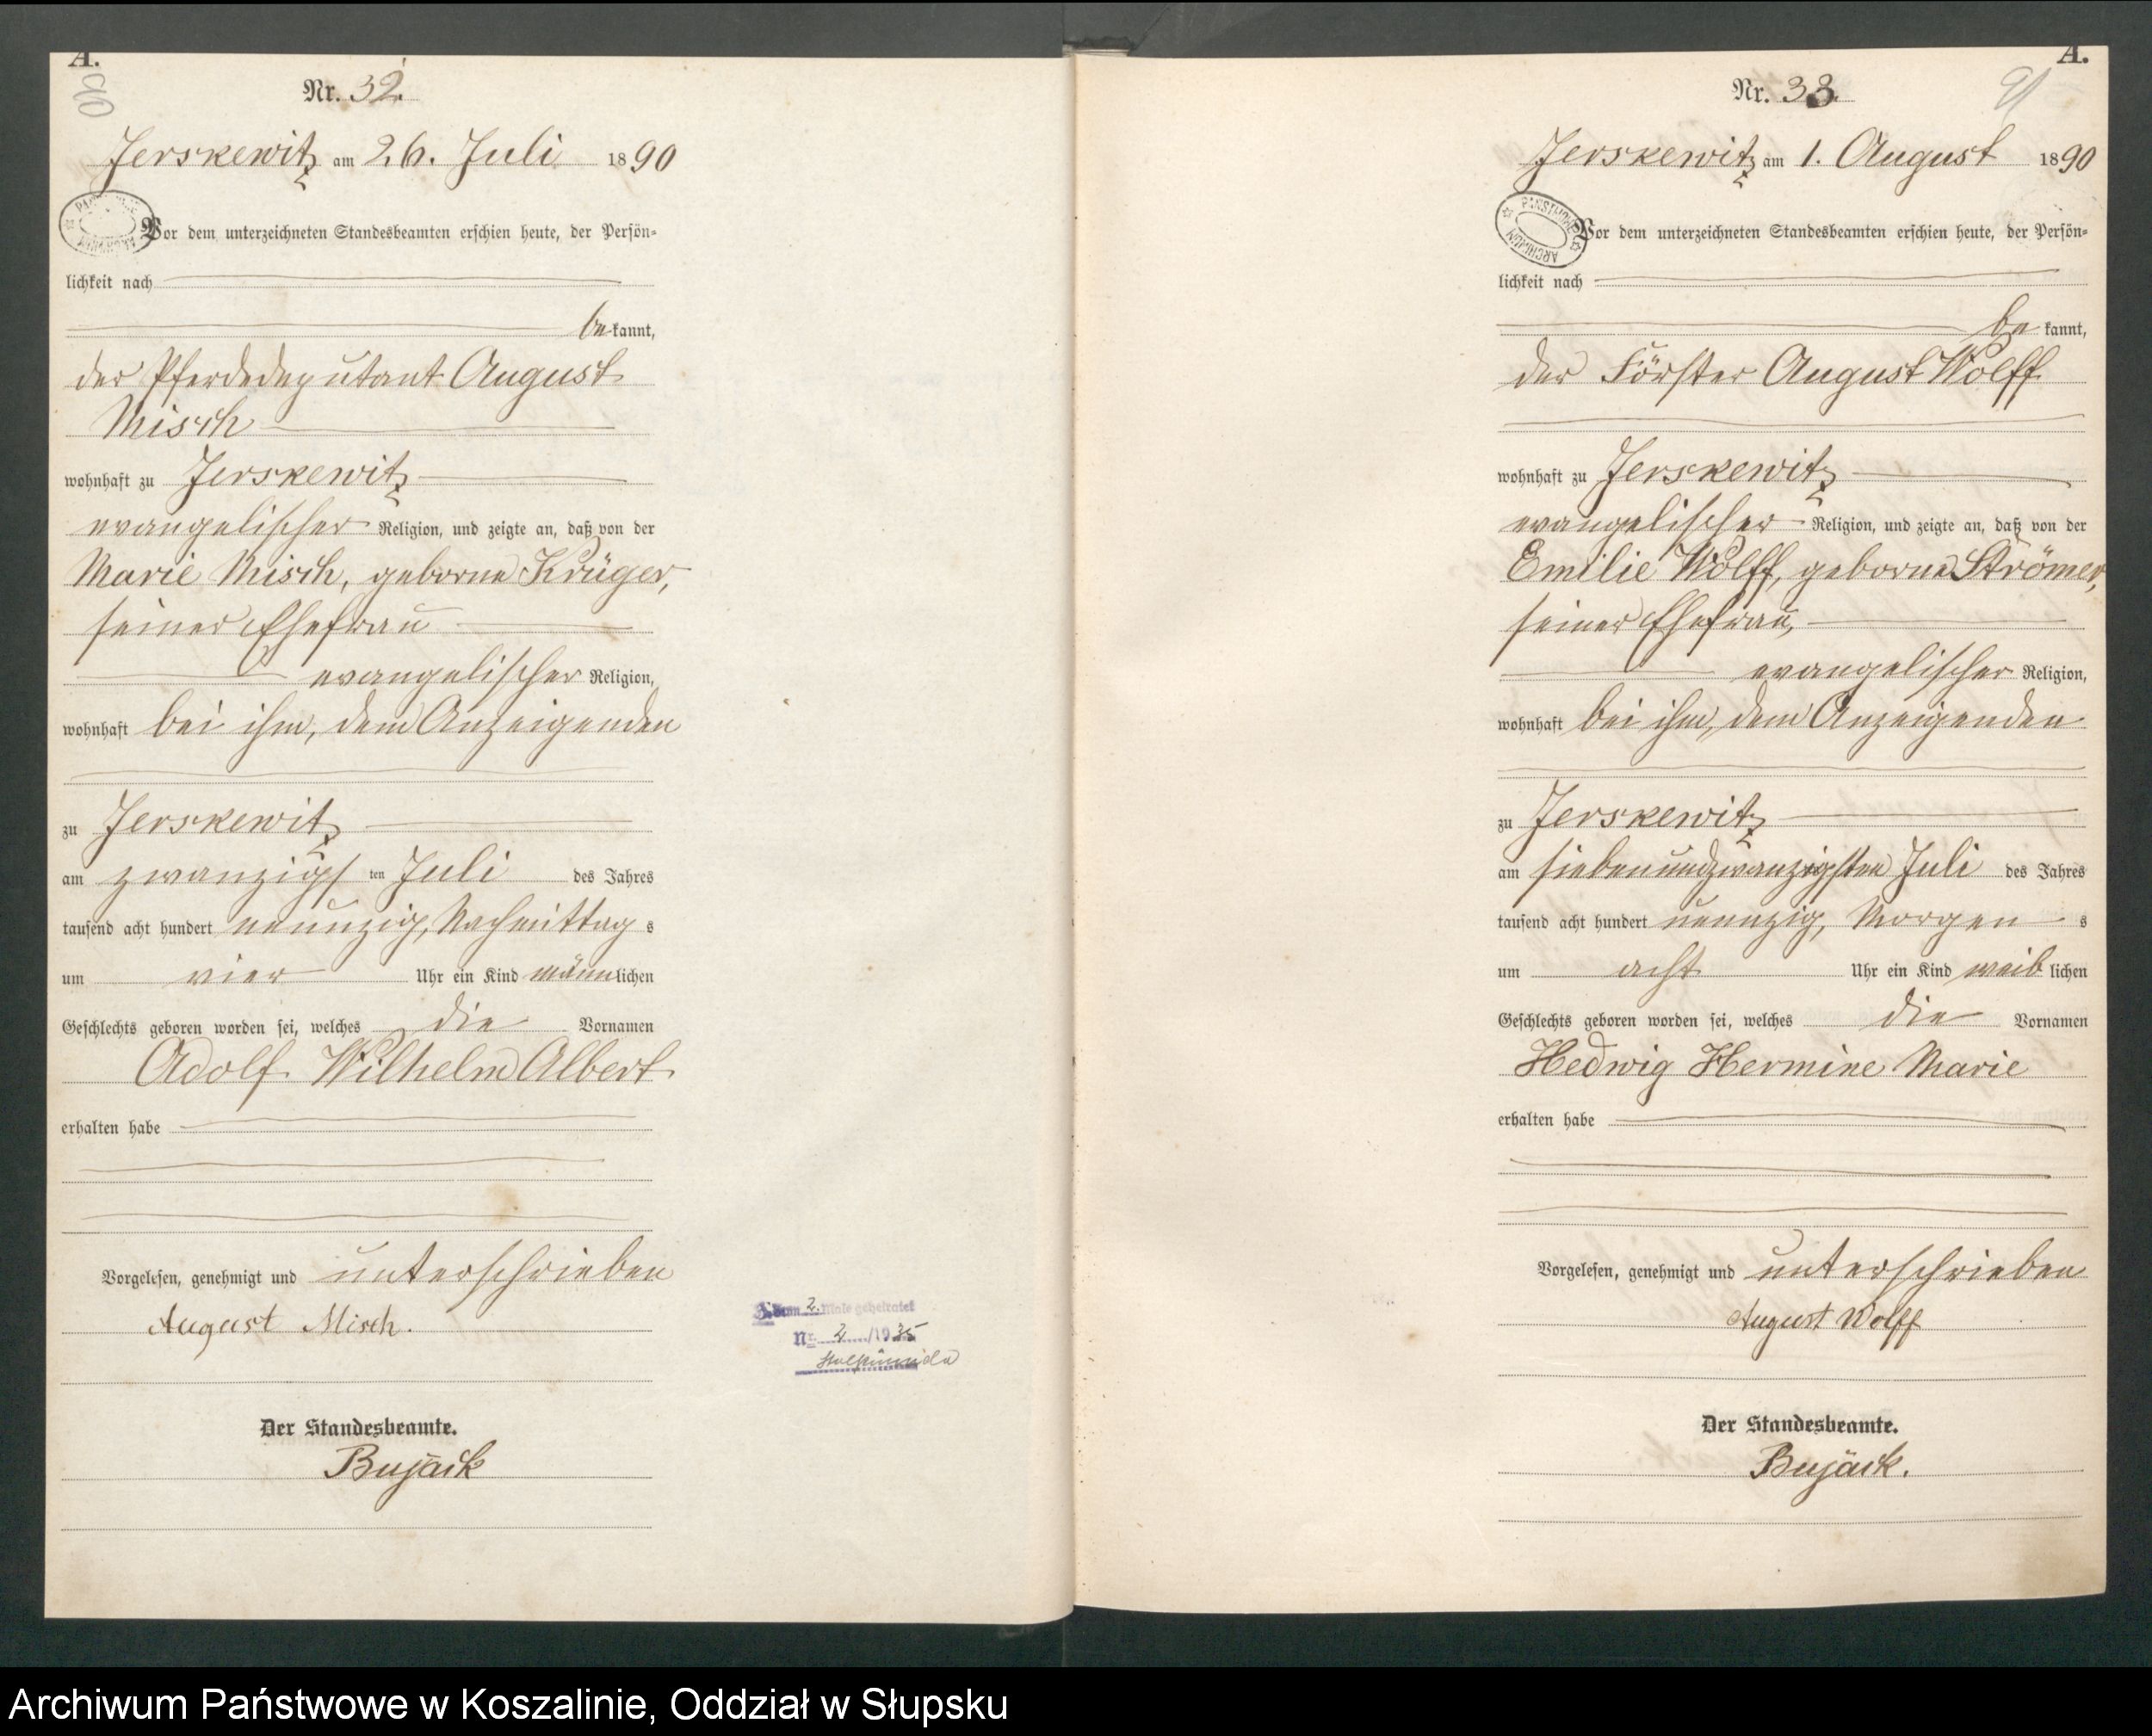 A.
Nr. 32.
Jerskewitz am 26. Juli 1890
Vor dem unterzeichneten Standesbeamten erschien heute, der Persön-
lichkeit nach
bekannt,
der Pferdedeputant August
Misch
wohnhaft zu Jerskewitz
evangelischer Religion, und zeigte an, daß von der
Marie Misch, geborne Krüger,
seiner Ehefrau
evangelischer Religion,
wohnhaft bei ihm, dem Anzeigenden
zu Jerskewitz
am zwanzigsten Juli des Jahres
tausend acht hundert neunzig, Nachmittags
um vier Uhr ein Kind männlichen
Geschlechts geboren worden sei, welches die Vornamen
Adolf Wilhelm Albert
erhalten habe
Vorgelesen, genehmigt und unterschrieben
August Misch.
Der Standesbeamte.
Bujack
2. Male geheiratet
Nr. 2/1935
Stolpmünde
A.
91
Nr. 33.
Jerskewitz am 1. August 1890
PAŃSTWOWE ARCHIWUM
Vor dem unterzeichneten Standesbeamten erschien heute, der Persön-
lichkeit nach
bekannt,
der Förster August Wolff
wohnhaft zu Jerskewitz
evangelischer Religion, und zeigte an, daß von der
Emilie Wolff, geborne Strömer,
seiner Ehefrau,
evangelischer Religion,
wohnhaft bei ihm, dem Anzeigenden
zu Jerskewitz
am siebenundzwanzigsten Juli des Jahres
tausend acht hundert neunzig, Morgens
um acht Uhr ein Kind weiblichen
Geschlechts geboren worden sei, welches die Vornamen
Hedwig Hermine Marie
erhalten habe
Vorgelesen, genehmigt und unterschrieben
August Wolff
Der Standesbeamte.
Bujack.
Archiwum Państwowe w Koszalinie, Oddział w Słupsku